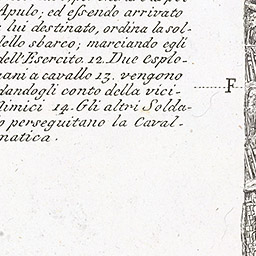 Apulo; ed essendo arrivato
lui destinato, ordina la sol-
dello sbarco; marciando egli
dell'Esercito. 12. Due esplo-
a cavallo 13. vengono
dandogli conto della vici-
14. Gli altri Solda-
perseguitano la Caval-
F